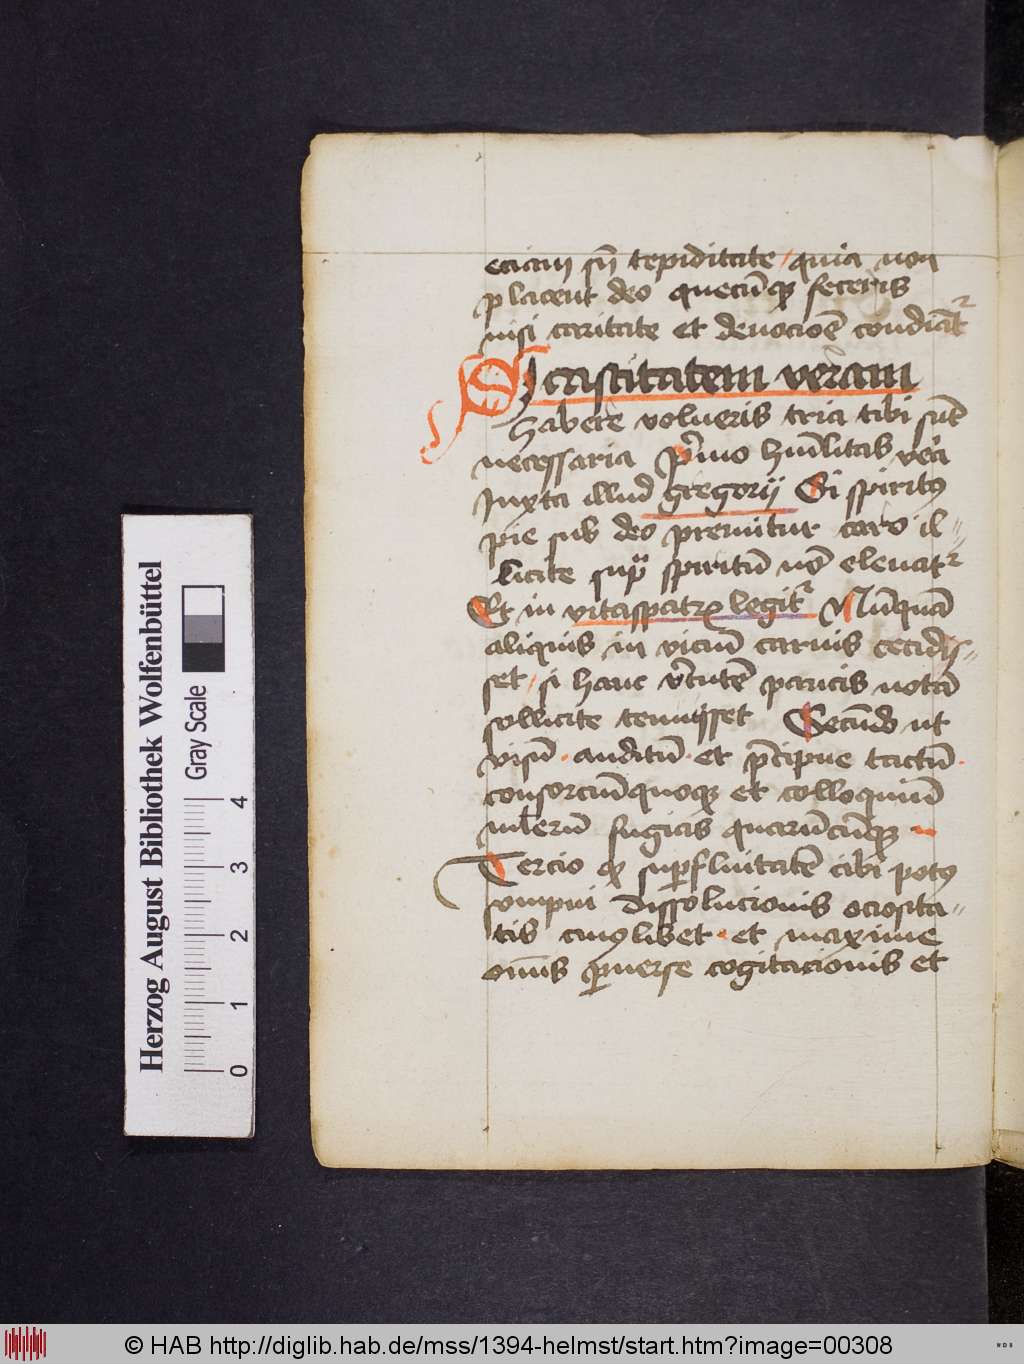 eciam sn̄ tepiditate / quia non
placent deo quecūqꝫ feceris
nisi caritate et deuocōe condiāt᷑
Si castitatem veram
habere volueris tria tibi sūt
necessaria pͥmo hūilitas vͤa
Juxta illud gregorij Si spiritꝰ
pie sub deo premitur caro il-
licite supͣ spiritū nō eleuat᷑
Et in vitaspatrꝝ legit᷑ Nūquā
aliquis in viciū carnis cecidis-
set / si hanc v̓tutē paucis notā
sollicite tenuisset Secūdo ut
visū · auditū · et pͥcipue tactū ·
consorciūquoqꝫ et colloquiuͫ
mlierū fugias quarūcūqꝫ
Tercio qꝫ suꝑfluitatē cibi potꝰ
sompni dissolucionis ociosita-
tis cuiꝰlibet · et maxime
omīs ꝑuerse cogitacionis et
Herzog August Bibliothek Wolfenbüttel
Gray Scale
0 1 2 3 4
© HAB http://diglib.hab.de/mss/1394-helmst/start.htm?image=00308